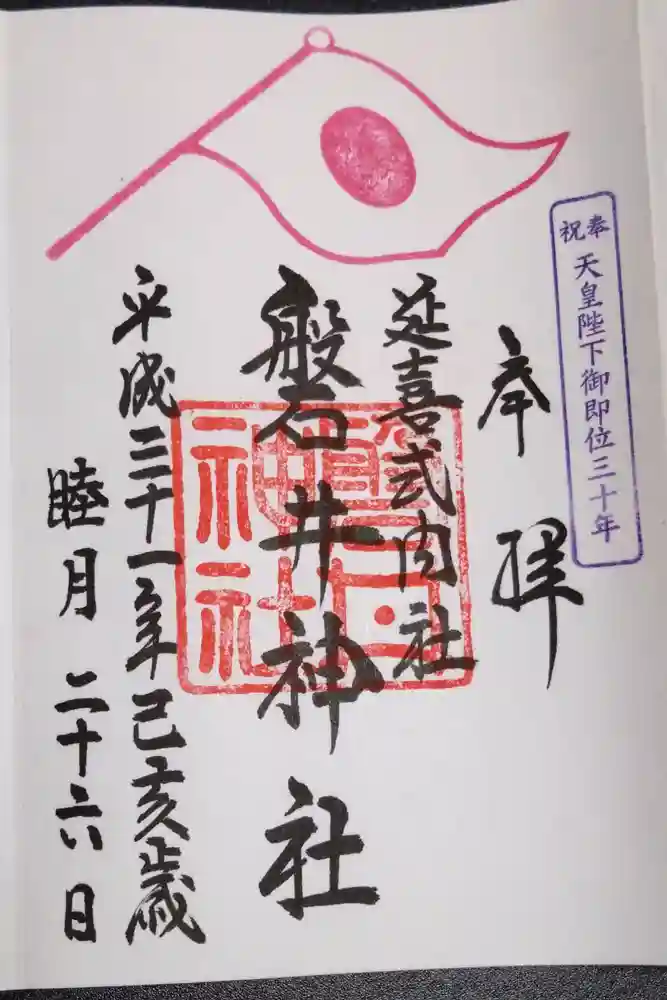 奉祝
天皇陛下御即位三十年
奉拝
延喜式内社
磐井神社
平成三十一年己亥歳
睦月 二十六日
磐井
神社